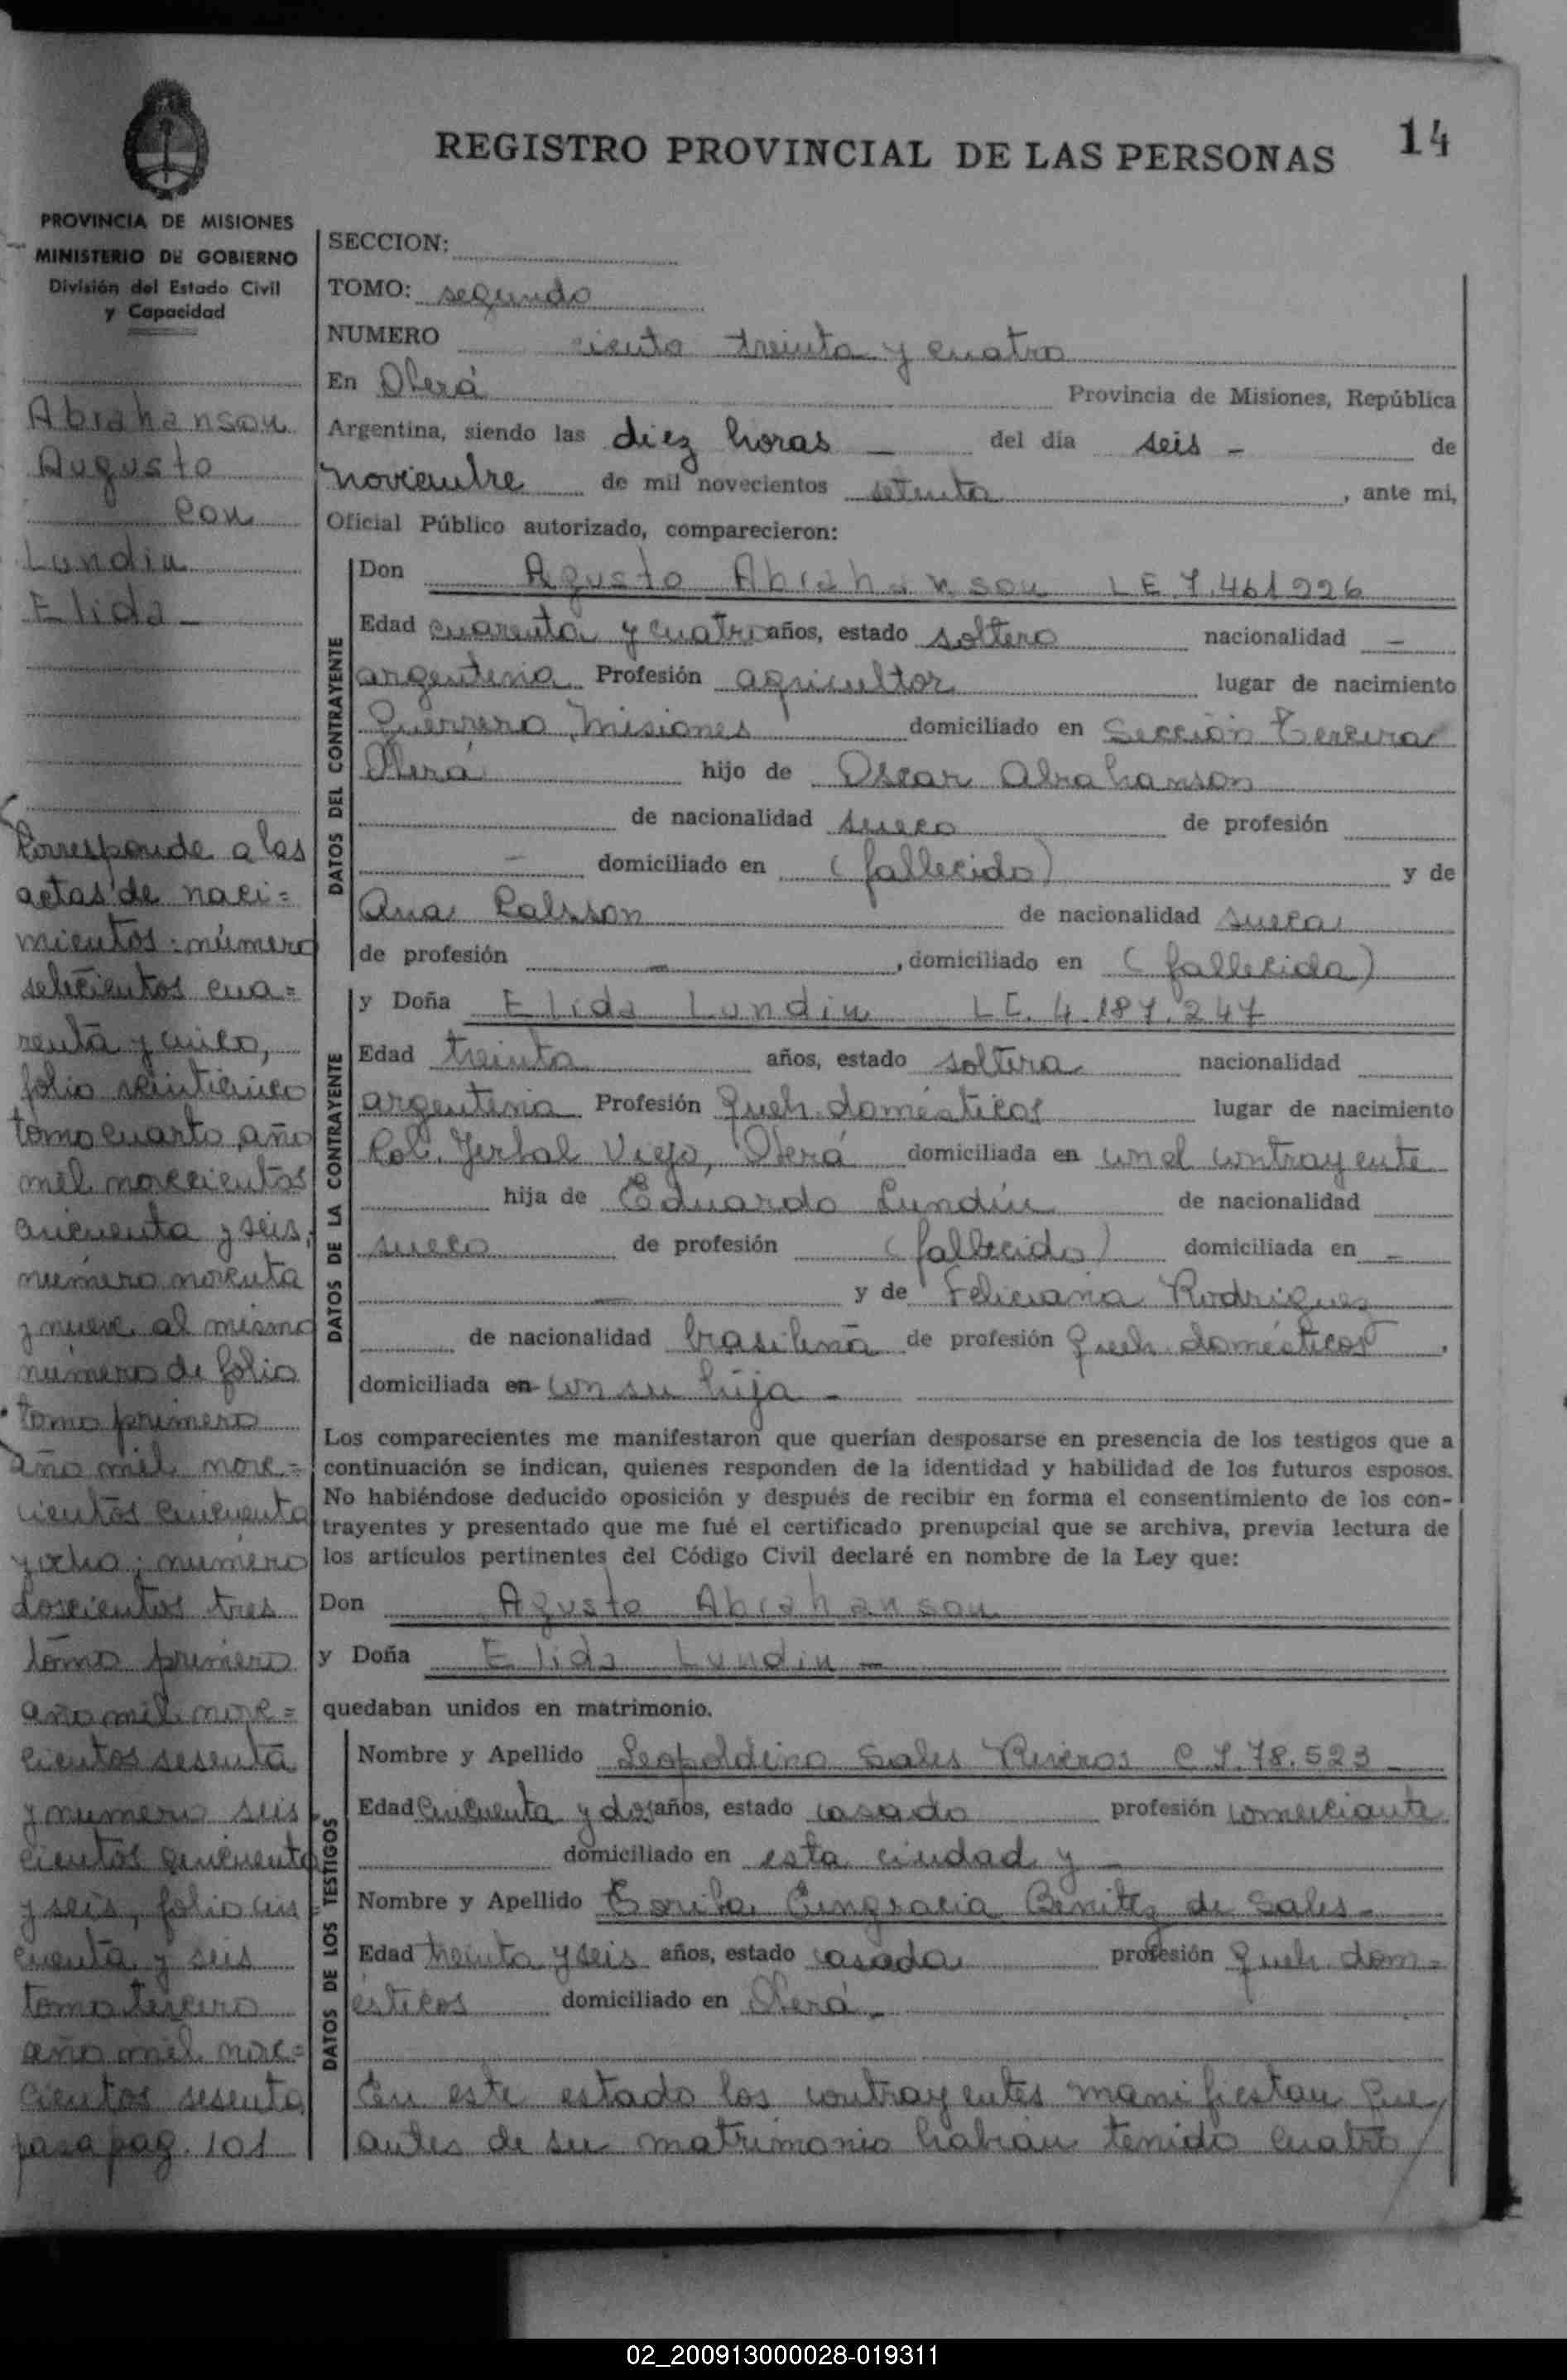 REGISTRO PROVINCIAL DE LAS PERSONAS
14
PROVINCIA DE MISIONES
MINISTERIO DE GOBIERNO
División del Estado Civil
y Capacidad
Abrahanson
Augusto
con
Lundin
Elida -
Corresponde a las
actas de naci=
mientos: número
setecientos cua=
renta y cinco,
folio veinticinco
tomo cuarto, año
mil novecientos
cincuenta y seis;
número noventa
y nueve al mismo
número de folio
tomo primero
año mil nove=
cientos cincuenta
y ocho; número
doscientos tres
tomo primero
año mil nove=
cientos sesenta
y numero seis
cientos cincuenta
y seis, folio cin
cuenta y seis
tomo tercero
año mil nove=
cientos sesenta
pasa pag. 101
SECCION:
TOMO: segundo
NUMERO ciento treinta y cuatro
En Oberá Provincia de Misiones, República
Argentina, siendo las diez horas - del día seis - de
noviembre de mil novecientos setenta, ante mi,
Oficial Público autorizado, comparecieron:
DATOS DEL CONTRAYENTE
Don Agusto Abrahanson LE 7.461226
Edad cuarenta y cuatro años, estado soltero nacionalidad -
argentina Profesión agricultor lugar de nacimiento
Guerrero, Misiones domiciliado en Sección Tercera
Oberá hijo de Oscar Abrahanson
de nacionalidad sueco de profesión
- domiciliado en (fallecido) y de
Ana Calsson de nacionalidad sueca
de profesión -, domiciliado en (fallecida)
DATOS DE LA CONTRAYENTE
y Doña Elida Lundin LC. 4.187.247
Edad treinta años, estado soltera nacionalidad
argentina Profesión queh. domésticos lugar de nacimiento
Col. Yerbal Viejo, Oberá domiciliada en con el contrayente
hija de Eduardo Lundin de nacionalidad
sueco de profesión (fallecido) domiciliada en -
- y de Feliciana Rodrigues
de nacionalidad brasileña de profesión queh. domésticos,
domiciliada en con su hija -
Los comparecientes me manifestaron que querían desposarse en presencia de los testigos que a
continuación se indican, quienes responden de la identidad y habilidad de los futuros esposos.
No habiéndose deducido oposición y después de recibir en forma el consentimiento de los con-
trayentes y presentado que me fué el certificado prenupcial que se archiva, previa lectura de
los artículos pertinentes del Código Civil declaré en nombre de la Ley que:
Don Agusto Abrahanson
y Doña Elida Lundin -
quedaban unidos en matrimonio.
DATOS DE LOS TESTIGOS
Nombre y Apellido Leopoldino Sales C.I. 78.523
Edad cincuenta y dos años, estado casado profesión comerciante
domiciliado en esta ciudad y -
Nombre y Apellido Engracia Benitez de Sales -
Edad treinta y seis años, estado casada profesión queh. dom=
ésticos domiciliado en Oberá -
En este estado los contrayentes manifiestan que
antes de su matrimonio habían tenido cuatro
02_200913000028-019311